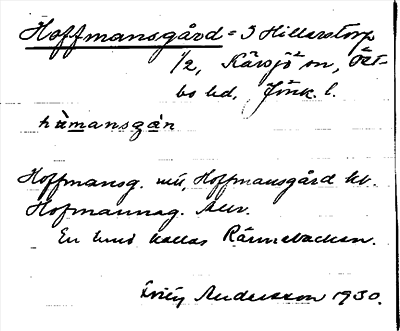 Hoffmansgård = 3 Hillerstorp
1/2, Kärsjö sn, Öst-
bo hd, Jönk. l.
hùmansgán
Hoffmansg. mú, Hoffmansgård kb.
Hofmannsg. Allv.
En backe kallas Rännebacken.
Andersson 1930.